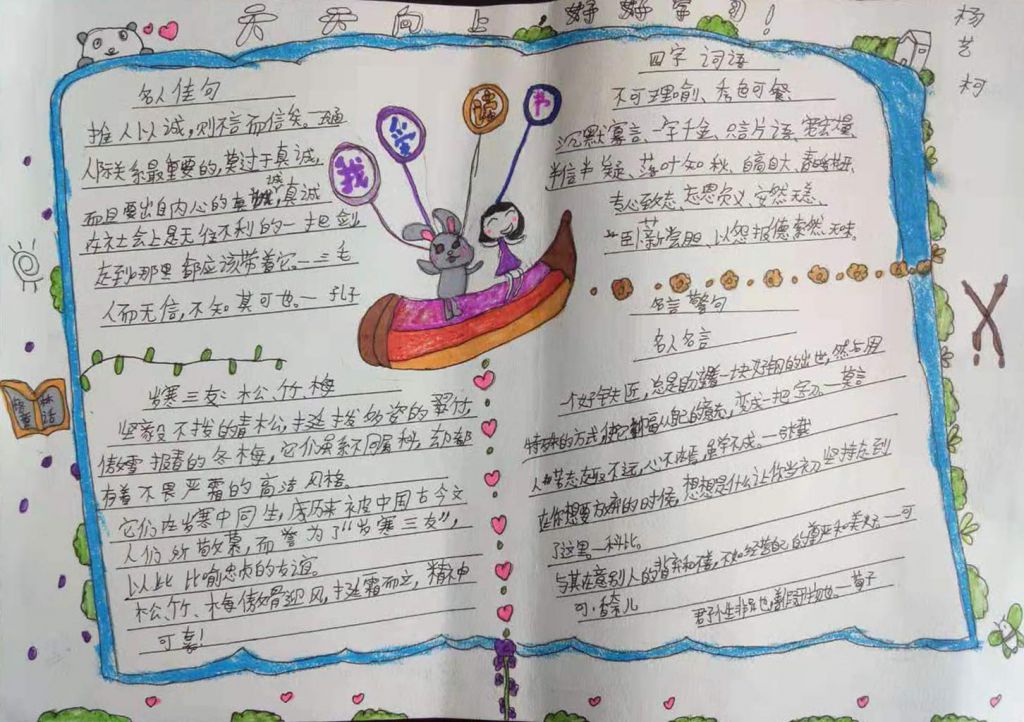 天天向上 好好学习!
杨艺柯
我爱读书
名人佳句
推人以诚,则不言而信矣。—王通
人际关系最重要的,莫过于真诚,
而且要出自内心的真诚,真诚
在社会上是无往不利的一把剑
走到那里都应该带着它。—三毛
人而无信,不知其可也。—孔子
岁寒三友:松、竹、梅
坚毅不拔的青松,挺拔多姿的翠竹,
傲雪报春的冬梅,它们虽系不同属科,却都
有着不畏严霜的高洁风格。
它们在岁寒中同生,历来被中国古今文
人们所敬慕,而誉为了"岁寒三友",
以此比喻忠贞的友谊。
松、竹、梅傲骨迎风,挺霜而立,精神
可嘉!
四字词语
不可理喻、秀色可餐、
沉默寡言、一字千金、只言片语、
半信半疑、落叶知秋、自高自大、
专心致志、忘恩负义、安然无恙、
卧薪尝胆、以怨报德、索然无味。
名言警句
名人名言
一个好铁匠,总是盼望着一块好钢的出世,然后用
特殊的方式,
变成一把宝刀。—莫言
人若志趣不远,心不在焉,虽学不成。—张载
在你想要放弃的时候,想想是什么让你当初坚持走到
了这里。—科比。
与其在意别人的背弃和不善,不如经营自己的尊严和美好。—可
可·香奈儿
君子生非异也,善假于物也。—荀子